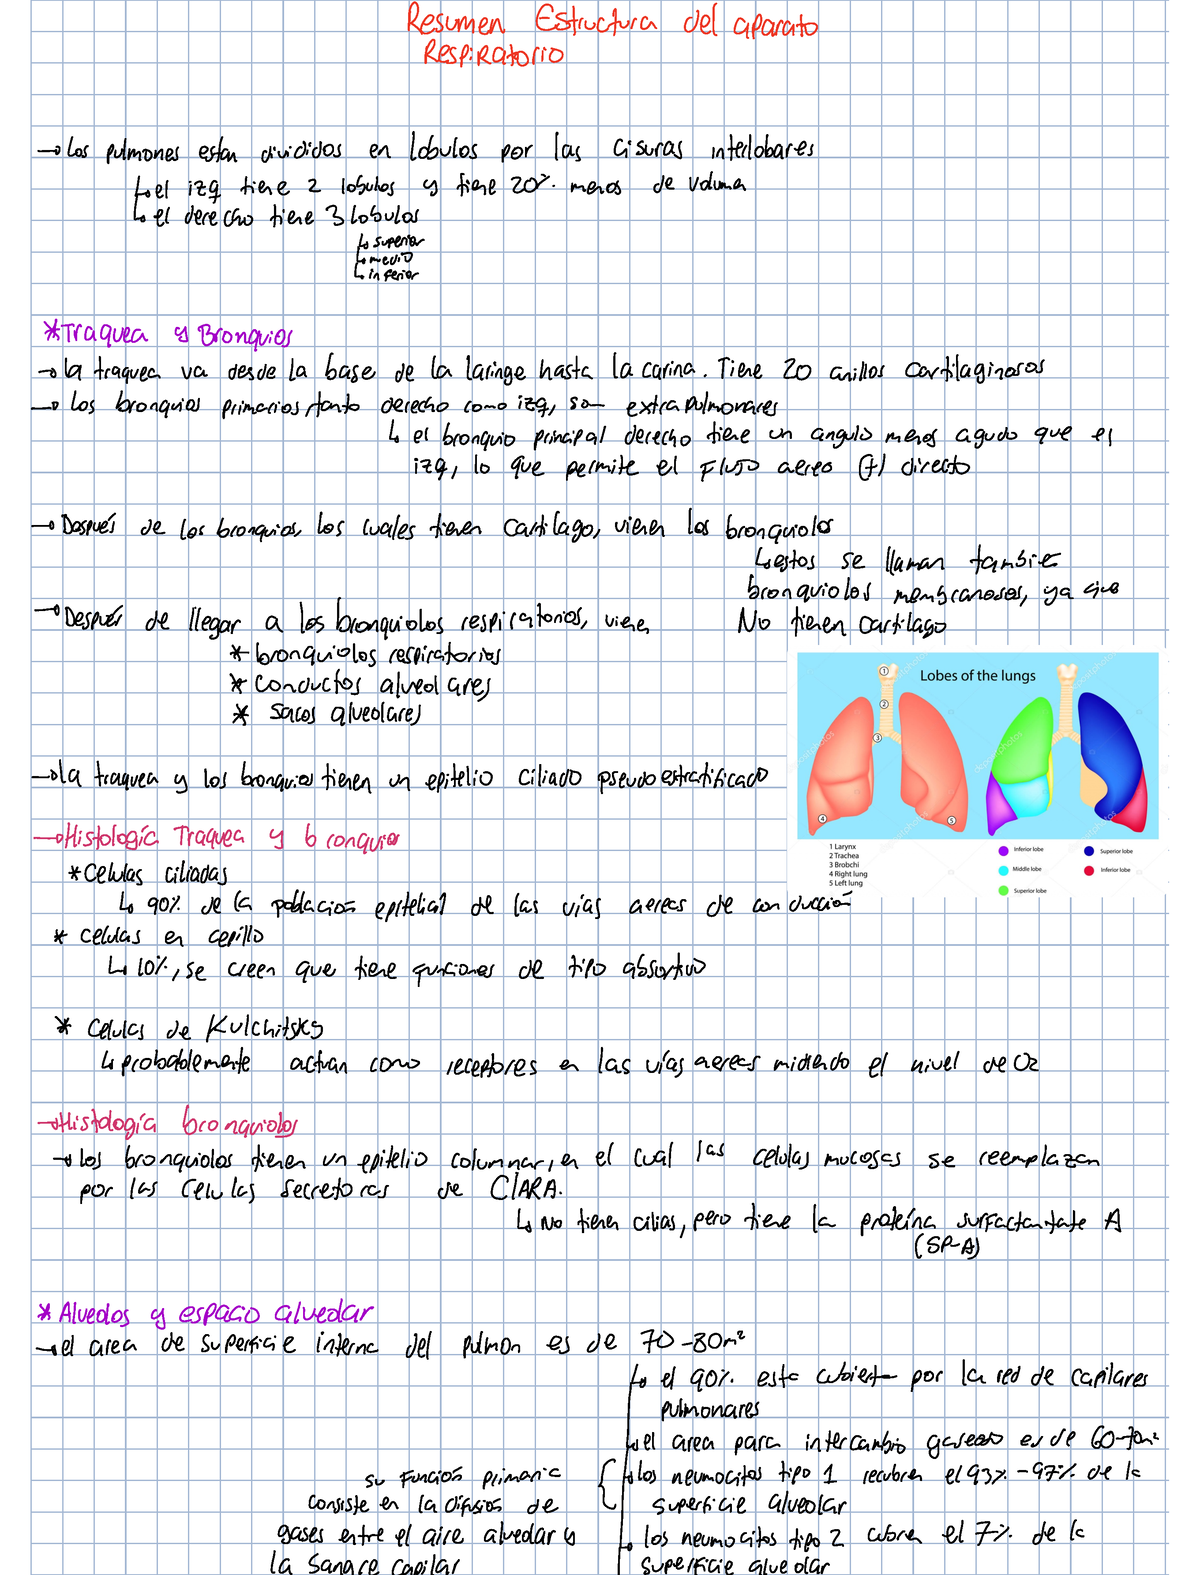 Resumen Estructura del aparato
Respiratorio
→ Los pulmones estan divididos en lobulos por las cisuras interlobares
↳ el izq tiene 2 lobulos y tiene 20% menos de volumen
↳ el derecho tiene 3 lobulos
↳ superior
↳ medio
↳ inferior
* Traquea y Bronquios
→ la traquea va desde la base de la laringe hasta la carina. Tiene 20 anillos cartilaginosos
→ los bronquios primarios, tanto derecho como izq, son extrapulmonares
↳ el bronquio principal derecho tiene un angulo menos agudo que el
izq, lo que permite el flujo aereo (+) directo
→ Después de los bronquios, los cuales tienen cartilago, vienen los bronquiolos
↳ estos se llaman tambie
bronquiolos membranosos, ya que
No tienen cartilago
→ Después de llegar a los bronquiolos respiratorios, viene
* bronquiolos respiratorios
* conductos alveolares
* sacos alveolares
Lobes of the lungs
1
2
3
4
5
1 Larynx
2 Trachea
3 Brobchi
4 Right lung
5 Left lung
Inferior lobe
Middle lobe
Superior lobe
Superior lobe
Inferior lobe
→ la traquea y los bronquios tienen un epitelio ciliado pseudoestratificado
→ Histología Traquea y bronquios
* Celulas ciliadas
↳ 90% de la poblacion epitelial de las vias aereas de conducción
* celulas en cepillo
↳ 10%, se creen que tiene funciones de tipo absortivo
* Celulas de Kulchitsky
↳ probablemente actuan como receptores en las vías aereas midiendo el nivel de O2
→ Histología bronquiolos
→ los bronquiolos tienen un epitelio columnar, en el cual las celulas mucosas se reemplazan
por las celulas secretoras de CLARA.
↳ No tienen cilias, pero tiene la proteína surfactantate A
(SP-A)
* Alveolos y espacio alveolar
→ el area de superficie interna del pulmon es de 70-80m²
↳ el 90% esta cubierta por la red de capilares
pulmonares
↳ el area para intercambio gaseoso es de 60-70m²
↳ los neumocitos tipo 1 recubren el 93% - 97% de la
superficie alveolar
su función primaria
consiste en la difusión de
gases entre el aire alveolar y
la sangre capilar
↳ los neumocitos tipo 2 cubren el 7% de la
superficie alveolar